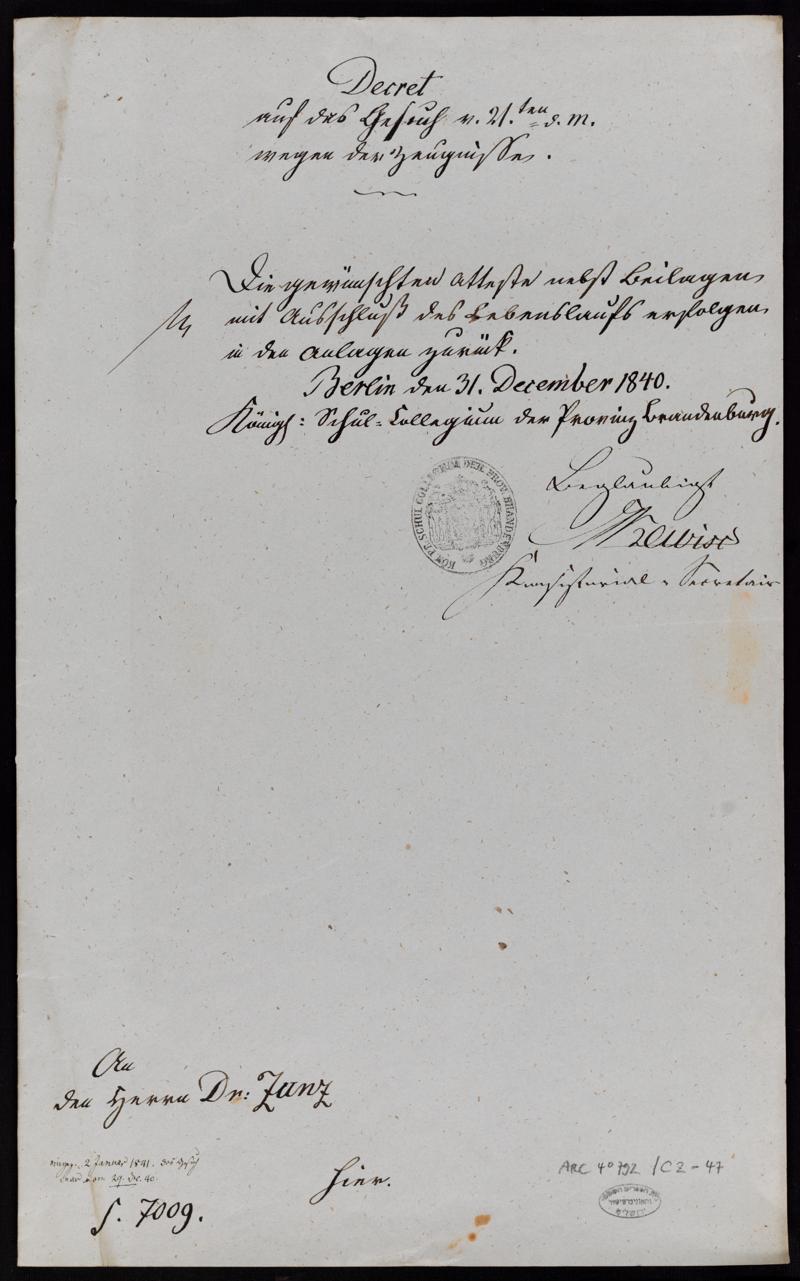 Decret
auf das Gesuch v. 21.ten d. M.
wegen der Zeugnisse.
Die gewünschten Atteste nebst Beilagen
mit Ausschluß des Lebenslaufs erfolgen
in den Anlagen zurück.
Berlin den 31. December 1840.
Königl: Schul-Collegium der Provinz Brandenburg.
KÖN. PR. SCHUL COLLEGIUM DER PROV. BRANDENBURG
Beglaubigt
Consistorial-Secretair
An
den Herrn Dr: Zunz
eingeg. 2 Januar 1841. Das Gesuch
war vom 29. Dec. 40.
hier.
S. 7009.
ARC 4° 792 / C 2 - 47